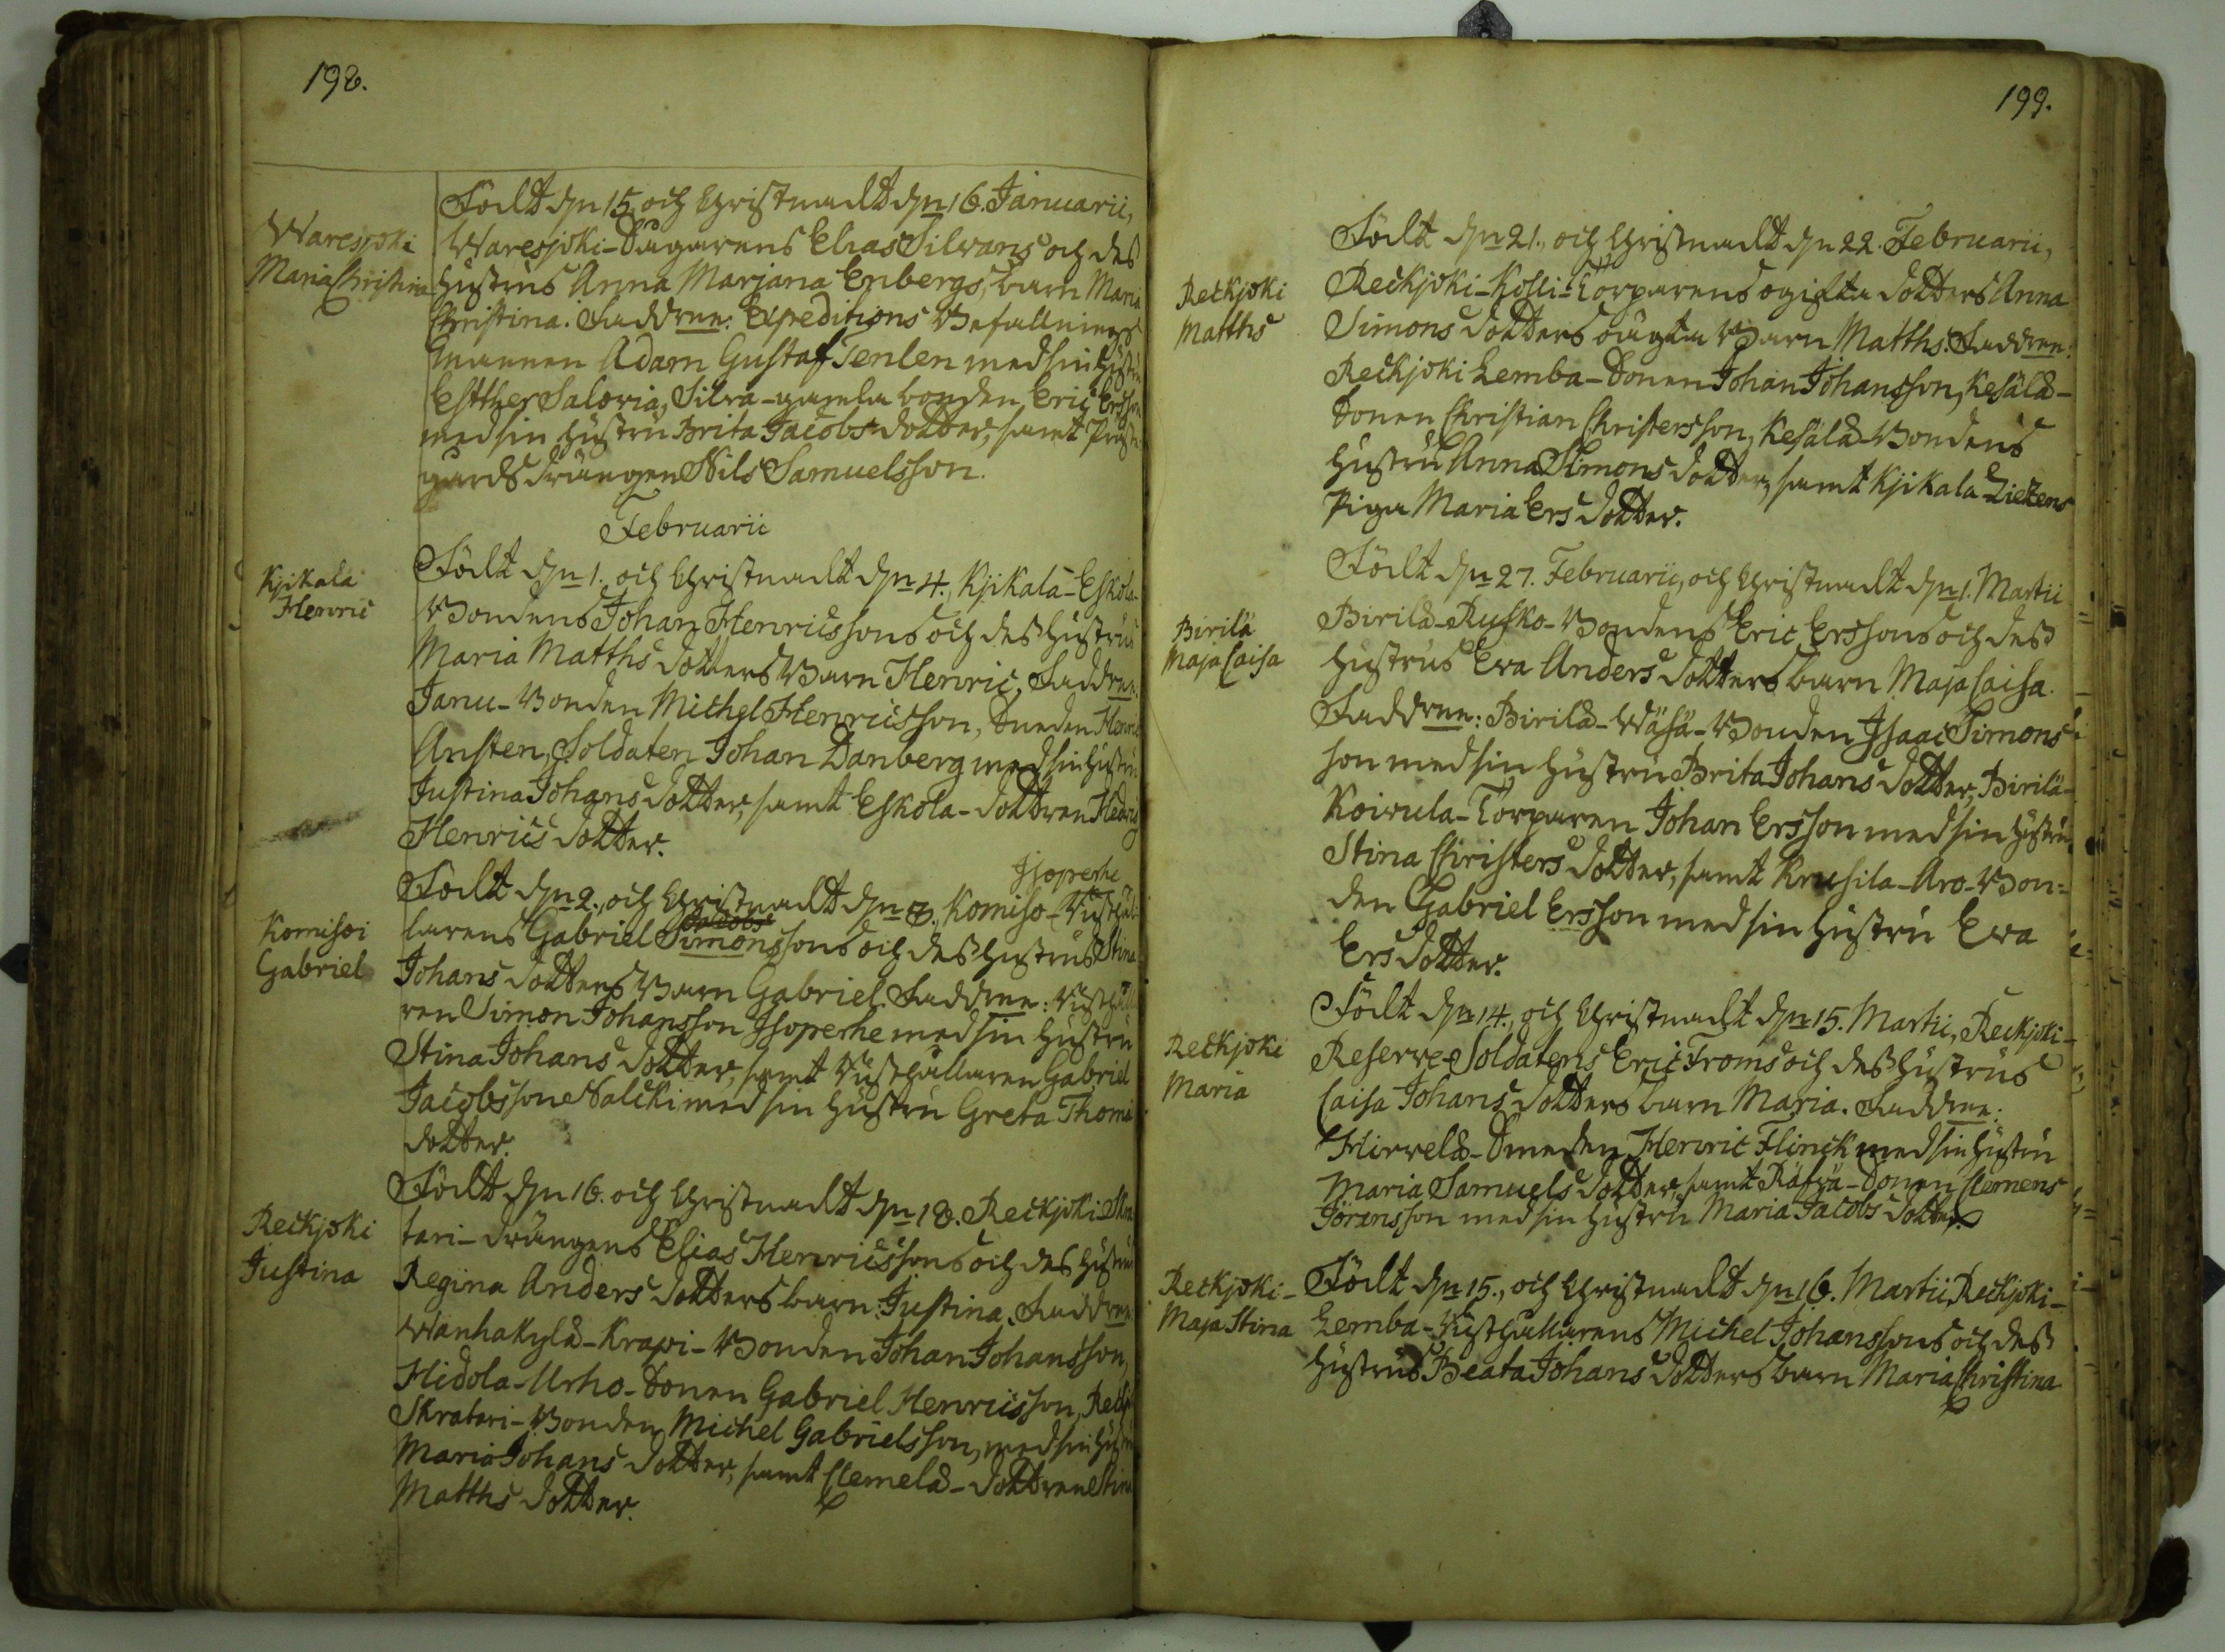 198.
Waresjoki
Maria Christina
Födt dn 15. och Christnadt dn 16. Januarii,
Waresjoki-Sågarens Elias Silwans och des
hustrus Anna Marjana Enbergs, barn Maria
Christina. Faddrne: Expeditions Befallnings
mannen Adam Gustaf Tenlen med sin hustru
Estther Saloria, Silra-gamla bonden Eric Ersson
med sin hustru Brita Jacobs dotter, samt Präste
gårds drängen Nils Samuelsson.
Februarii
Kjikala
Henric
Födt dn 1. och Christnadt dn 4. Kjikala-Eskola-
Bondens Johan Henricssons och des hustrus
Maria Matths dotters Barn Henric, Faddrne:
Janu-Bonden Michel Henricsson, Smeden Henric
Ansten, Soldaten Johan Danberg med sin hustru
Justina Johans dotter, samt Eskola-dottren Hedvig
Henrics dotter.
Komisoi
Gabriel
Jsoperhe
Födt dn 2., och Christnadt dn 8., Komiso-Rusthål-
Jacobs
larens Gabriel Simonssons och des hustrus Stina
Johans dotters Barn Gabriel. Faddrne: Rusthålla
ren Simon Johansson Jsoperhe med sin hustru
Stina Johans dotter, samt Rusthållaren Gabriel
Jacobsson Nalcki med sin hustru Greta Thomæ
dotter.
Reckjoki
Justina
Födt dn 16. och Christnadt dn 18. Reckjoki-Skra
tari-drängens Elias Henricssons och des hustrus
Regina Anders dotters barn Justina. Faddrne
Wanhakylä-Krapi-Bonden Johan Johansson,
Hidola-Urho-Sonen Gabriel Henricsson, Reckj
Skratari-Bonden Michel Gabrielsson, med sin hustru
Maria Johans dotter, samt Clemelä-dottren Stina
Matths dotter.
199.
Reckjoki
Matths
Födt dn 21., och Christnadt dn 22. Februarii,
Reckjoki-Kolli-Torparens ogifta dotters Anna
Simons dotters oägta Barn Matths. Faddrne:
Reckjoki Lemba-Sonen Johan Johansson, Kesälä-
Sonen Christian Christersson, Kesälä-Bondens
hustru Anna Simons dotter, samt Kjikala Lietzens
Piga Maria Ers dotter.
Birilä
Maja Caisa
Födt dn 27. Februarii, och Christnadt dn 1. Martii
Birilä-Rusko-Bondens Eric Erssons och dess
hustrus Ewa Anders dotters barn Maja Caisa.
Faddrne: Birilä-Wäsä-Bonden Jsaac Simons
son med sin hustru Brita Johans dotter, Birilä-
Koiwula-Torparen Johan Ersson med sin hustru
Stina Christers dotter, samt Krusila-Aro-Bon=
den Gabriel Ersson med sin hustru Ewa
Ers dotter.
Reckjoki
Maria
Födt dn 14., och Christnadt dn 15. Martii, Reckjoki-
Reserve-Soldatens Eric Froms och dess hustrus
Caisa Johans dotters barn Maria. Faddrne:
Hirwelä-Smeden Henric Flinck med sin hustru
Maria Samuels dotter, samt Räfvä-Sonen Clemens
Göransson med sin hustru Maria Jacobs dotter.
Reckjoki-
Maja Stina
Födt dn 15., och Christnadt dn 16. Martii, Reckjoki-
Lemba-Rusthållarens Michel Johanssons och dess
hustrus Beata Johans dotters barn Maria Christina